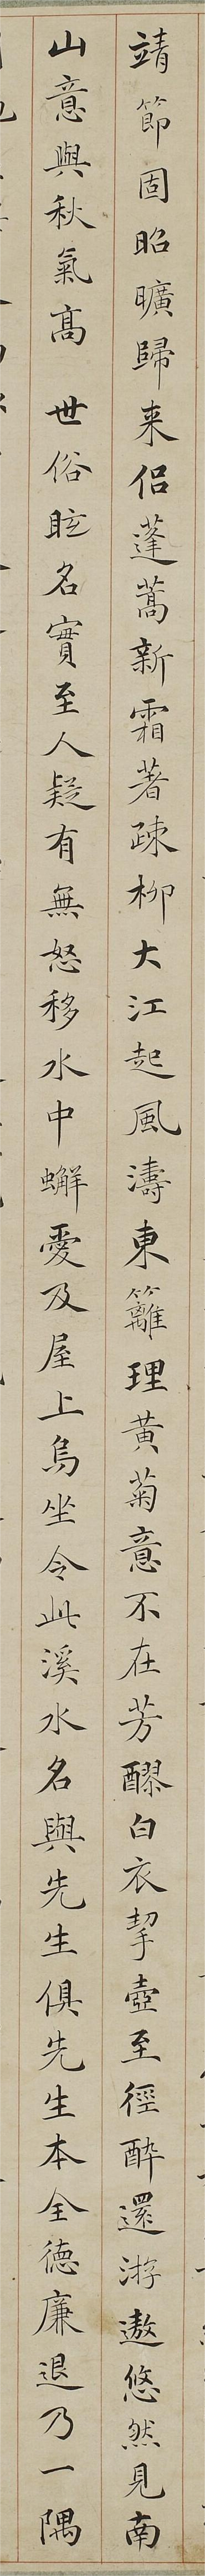 靖節固昭曠歸来侶蓬蒿新霜著疎柳大江起風濤東籬理黃菊意不在芳醪白衣挈壺至徑醉還游遨悠然見南
山意與秋氣高 世俗眩名實至人疑有無怒移水中蠏愛及屋上烏坐令此溪水名與先生俱先生本全德廉退乃一隅